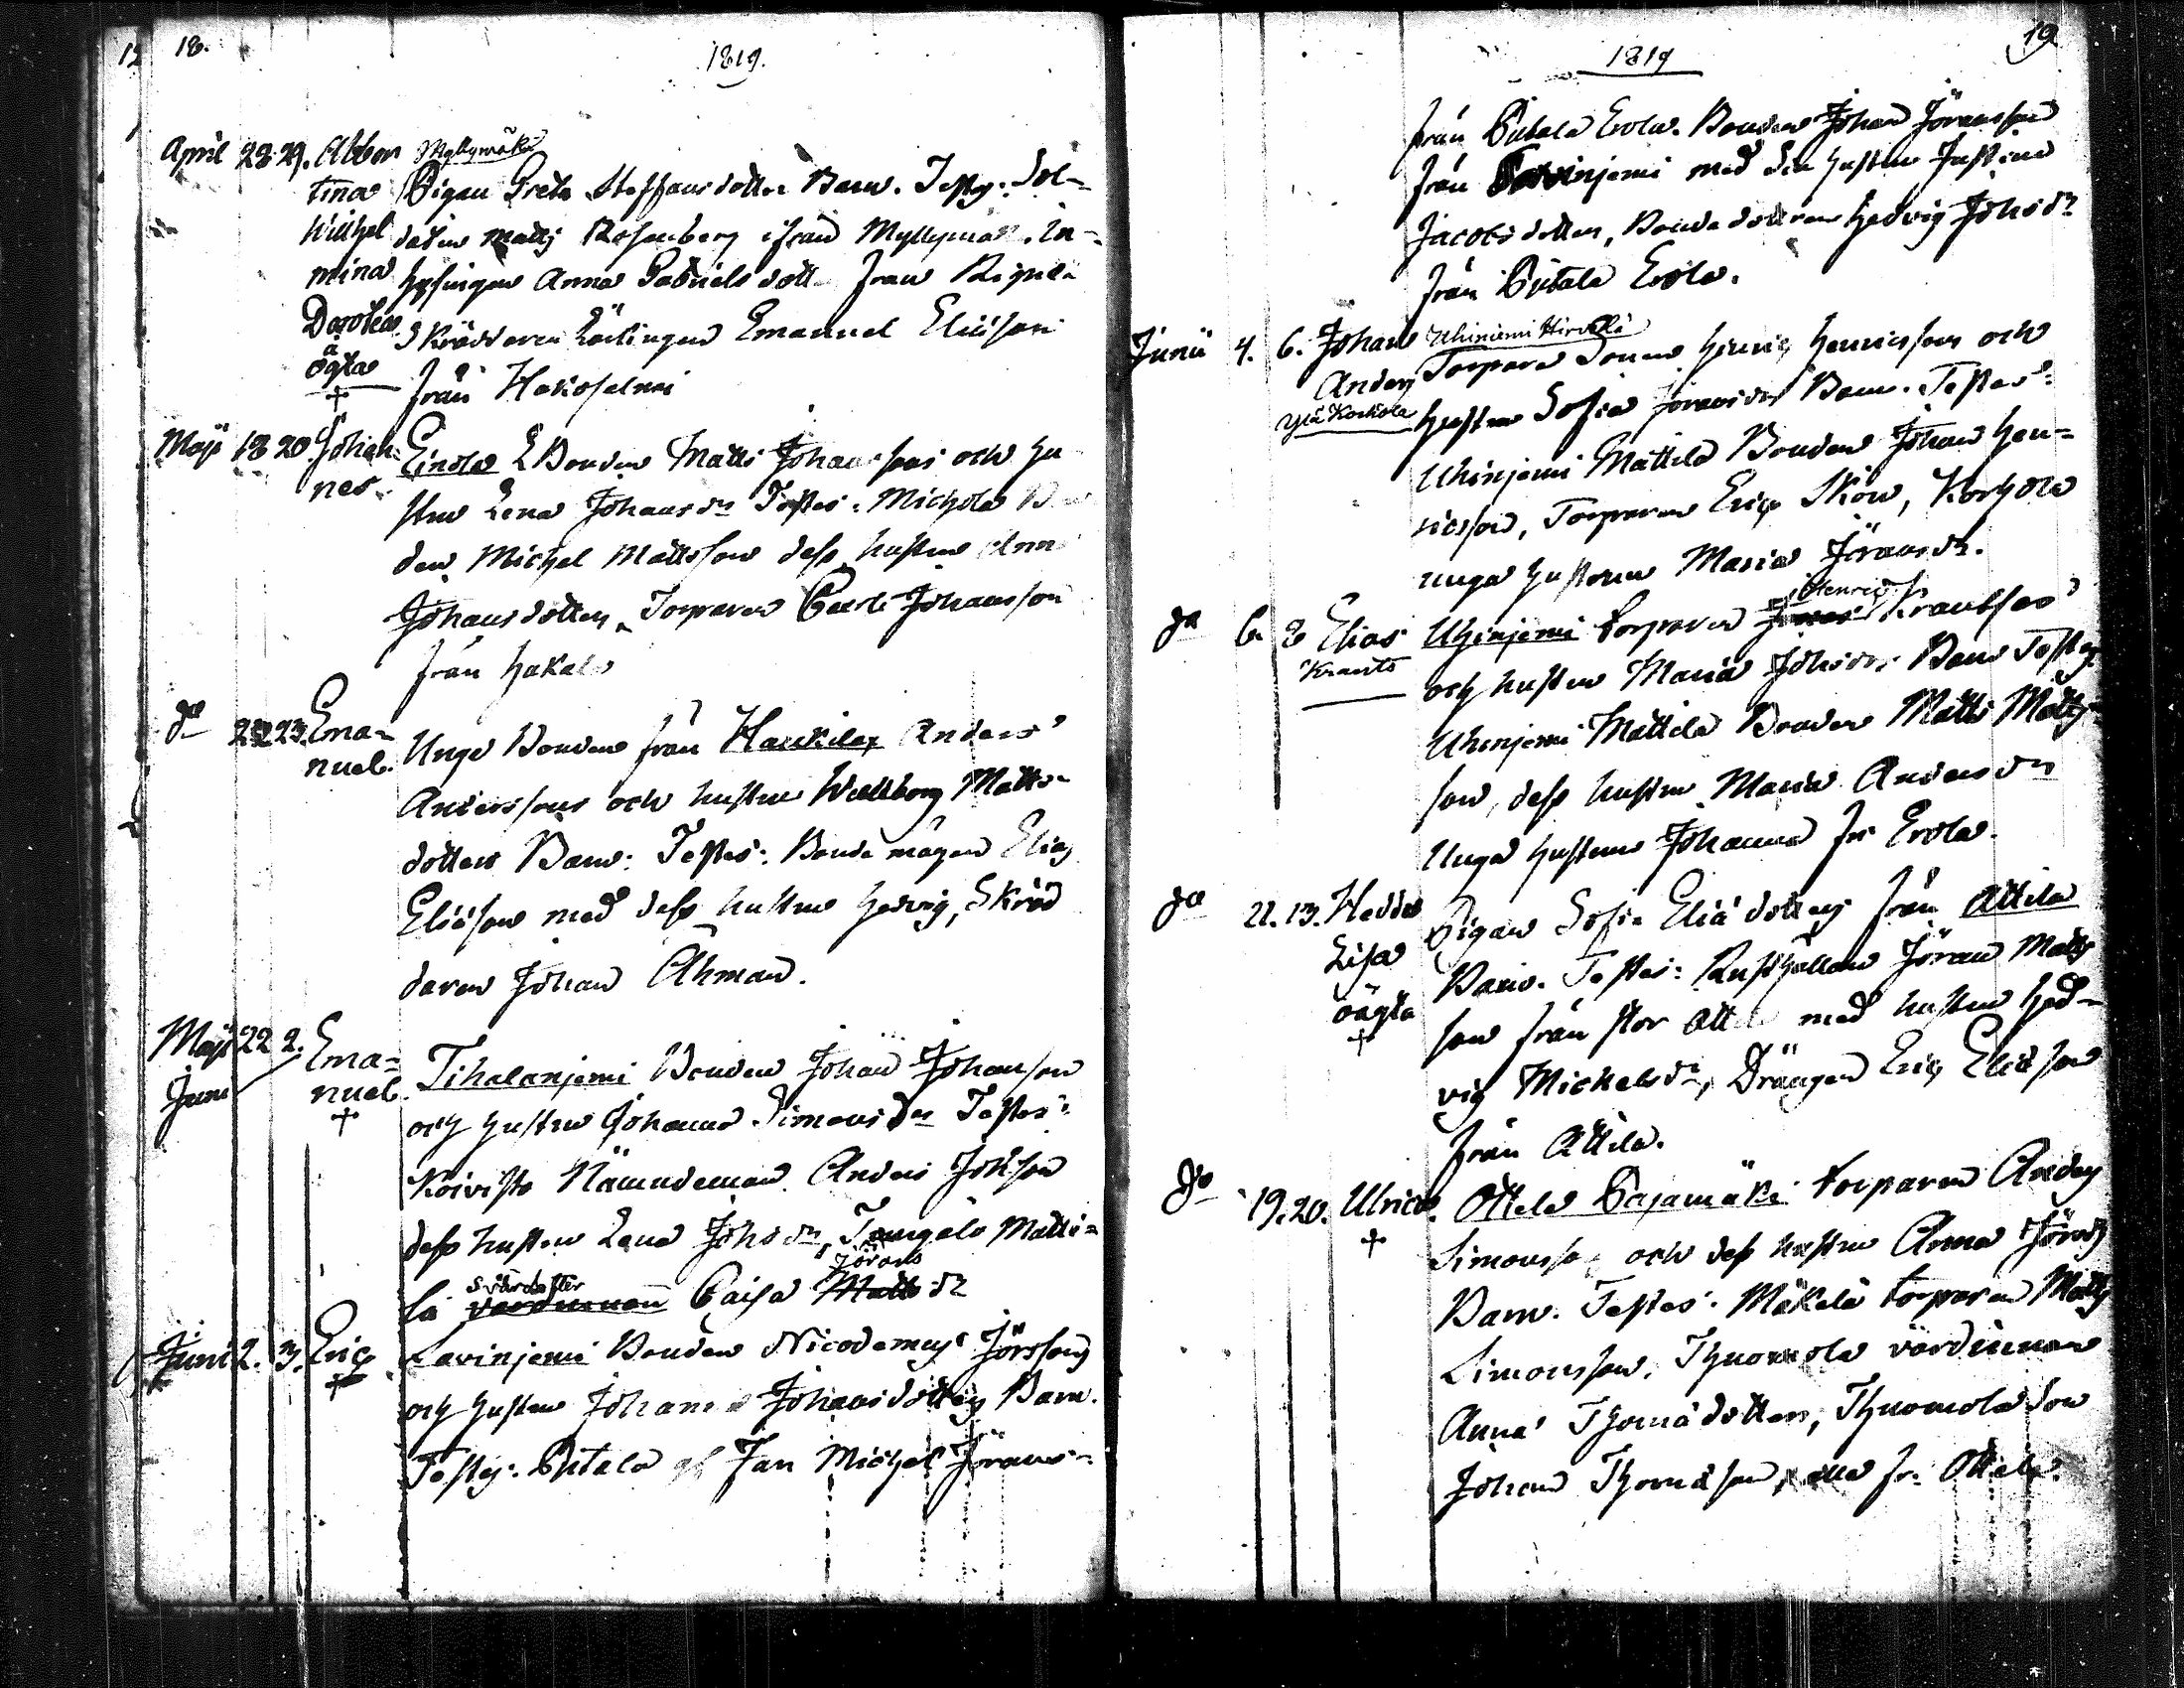 18.
1819.
April 28. 29. Albertina Wilhelmina Dorothea oägta †
Myllymäki
Pigan Greta Staffansdotter Barn. Testes: Sol-
daten Matts Rosenberg ifrån Myllymäk. In-
hysingen Anna Gabrielsdott från
Skräddaren Lärlingen Emanuel Eliäson
från Hakosalmi
Maji 18 20 Johannes.
Einola Bonden Matts Johanssons och hu
strus Lena Johansdr Testes: Michola B
den Michel Mattsson dess hustru Ann
Johansdotter, Torparen Carl Johansson
från Hakala
do 22 23. Emanuel.
Unge Bonden från Haukila Anders
Anderssons och hustrus Wallborg Matts-
dotters Barn: Testes: Bondemågen Elias
Eliäson med dess hustru Hedvig, Skräd
daren Johan Åhman.
Maji 22 2. Juni Emanuel. †
Tihalanjemi Bonden Johan Johanson
och hustrus Johanna Simonsdr Testes:
Koivisto Nämndeman Anders Johson
dess hustru Lena Johsdr, Matti-
la svärdotter Caisa Jörans dr
Juni 2. 3. Eric †
Savinjemi Bonden Nicodemus Jörssons
och hustrus Johanna Johansdotters Barn.
Testes: Putala gl Jan Michel Jörans-
19
1819
från Putala Erola. Bonden Johan Jöransson
från Savinjemi med hustru Justina
Jacobsdotter, Bondedottren Hedvig Johsdr
från Putala Erola.
Junii 4. 6. Johan Anders
Ylä Korkola
Uhiniemi Hirvelä
Torpare Sonens Henric Henricssons och
hustrus Sofia Jöransdrs Barn. Testes:
Uhinjemi Mattila Bonden Johan Hen-
ricsson, Torparen Eric Skön, Korhola
unga hustrun Maria Jöransdr.
do 6. 8 Elias
Krants
Uhinjemi torparen Henric Krantses
och hustrus Maria Johsdrs Barn Testes
Uhinjemi Mattila Bonden Matts Matts-
son, dess hustru Maria Andersdr
Unga hustrun Johanna fr. Erola.
do 11. 13. Hedda Lisa oägta †
Pigan Sofia Eliädotters från Attila
Barn. Testes: Rusthållaren Jöran Matts
son från stor Attila med hustru Hed-
vig Michelsdr, Drängen Eric Eliäson
från Attila.
do 19. 20. Ulrica. †
Ottela Pajamäki torparen Anders
Simonsso och dess hustrus Anna Jörsdrs
Barn. Testes: Mäkelä torparen Matts
Simonsson, Thuomola värdinnan
Anna Thomädotter, Thuomola Son
Johan Thomäson, alla fr. Ottela.